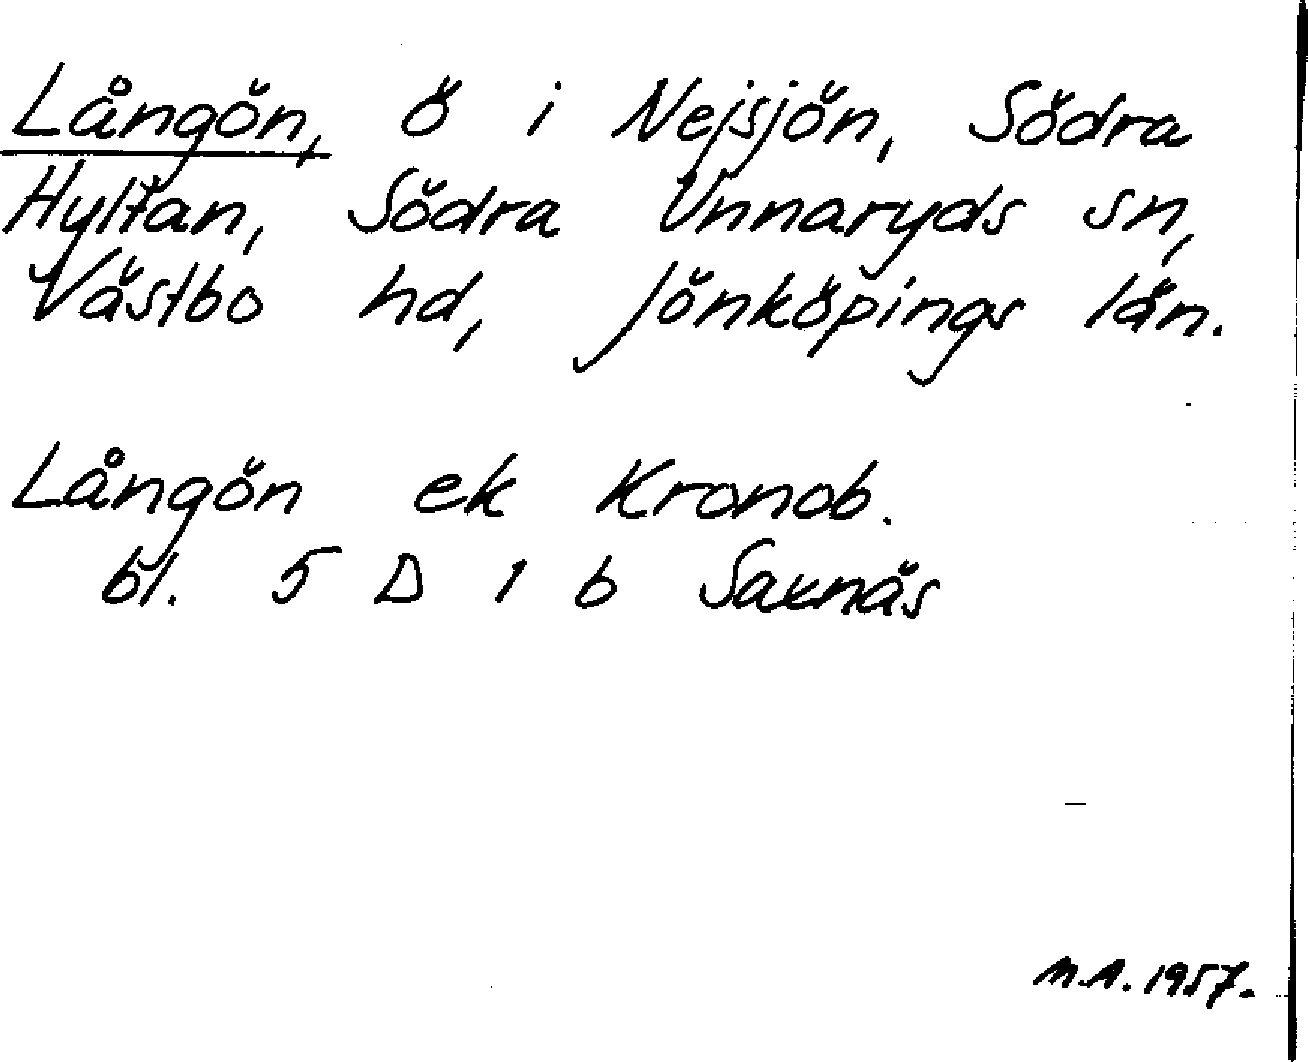 Långön, ö i Nejsjön, Södra
Hyltan, Södra Unnaryds sn,
Västbo hd, Jönköpings län.
Långön ek Kronob.
bl. 5 D 1 b Saxnäs
M.A. 1957.